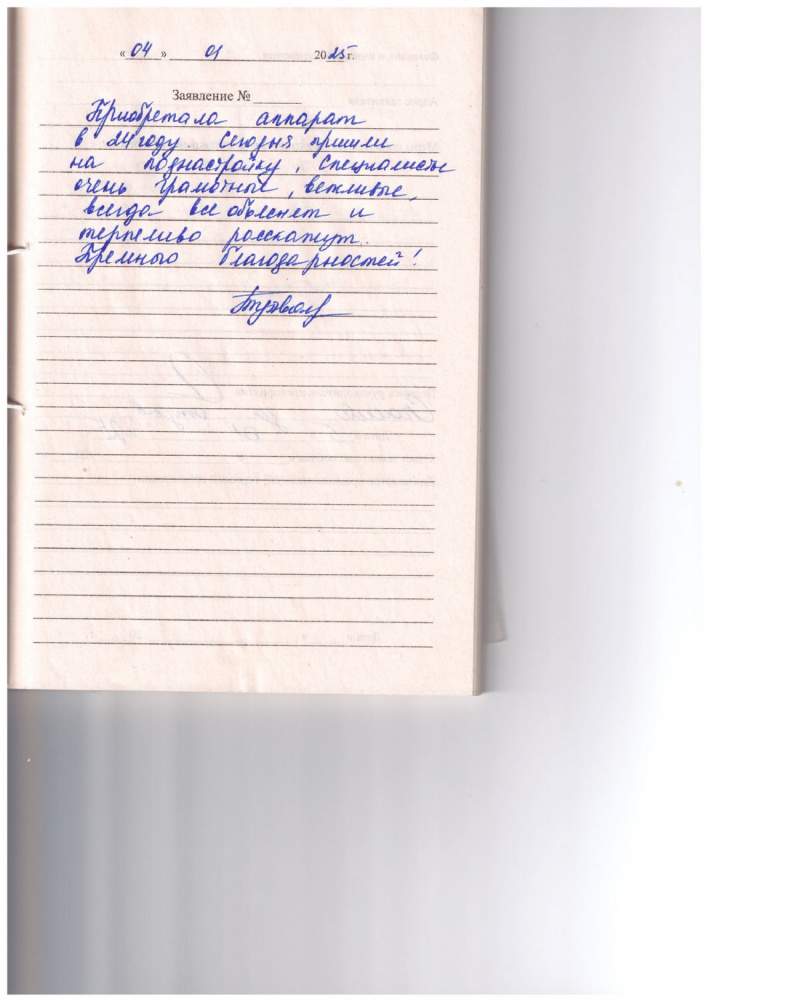 «04» 01 2025 г.
Заявление №
Приобретала аппарат
в 24 году. Сегодня пришли
на поднастройку, специалисты
очень грамотные, вежливые,
всегда все объяснят и
терпеливо росскажут.
Премного благодарностей!